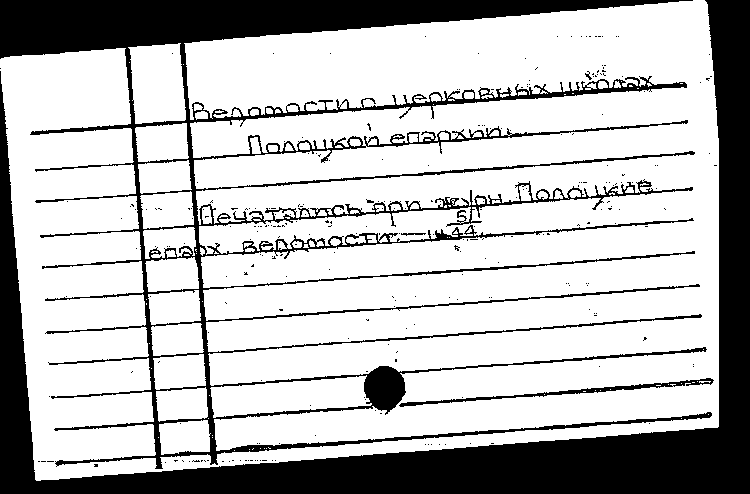 Ведомости о церковных школах
Полоцкой епархии.
Печатались при журн. Полоцкие
епарх. ведомости. — 51/44